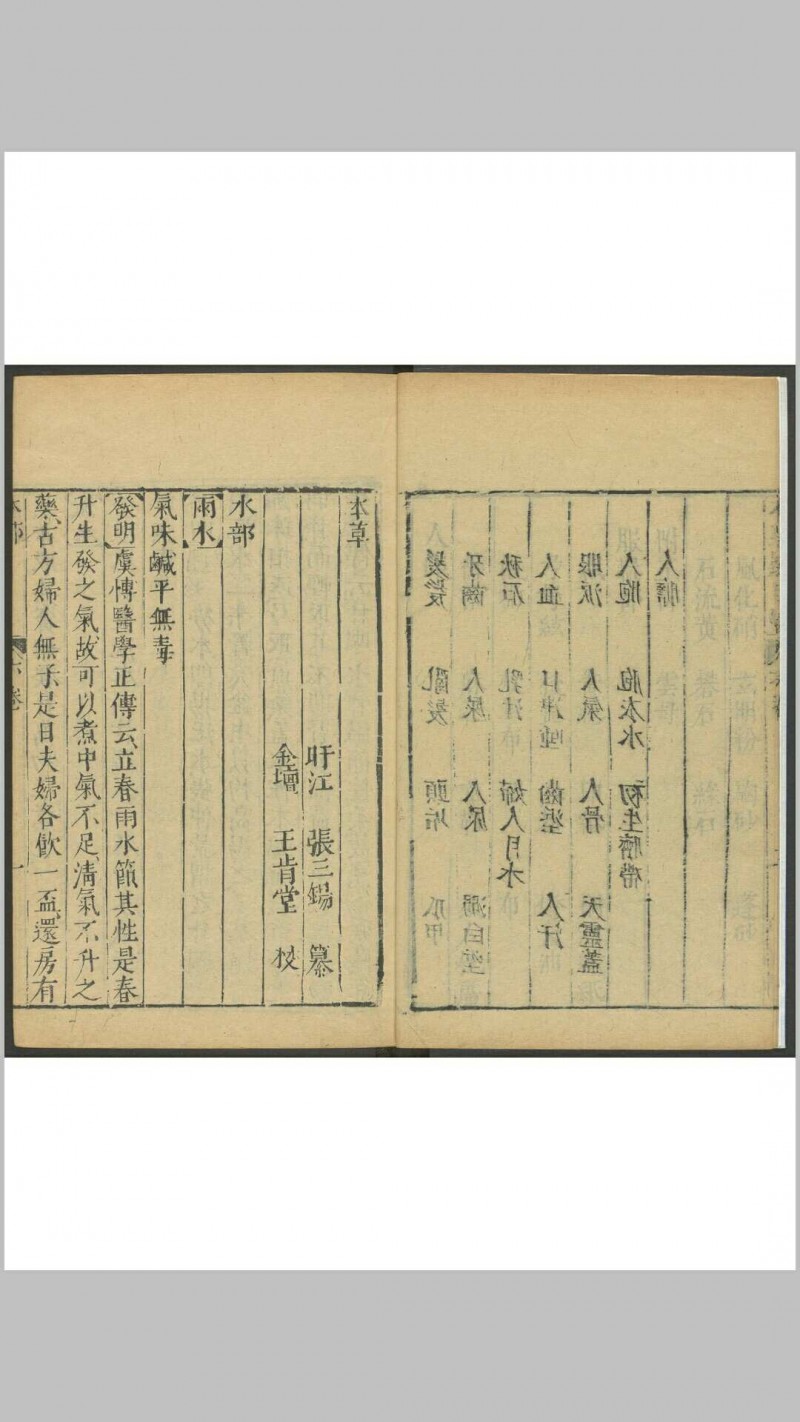 髮髲 亂髮 頭垢 爪甲
牙齒 人屎 人尿 溺白垽
秋石 乳汁 婦人月水
人血 口津唾 齒垽 人汗
眼淚 人氣 人骨 天靈蓋
人胞 胞衣水 初生臍帶
人膽
本草
盱江 張三錫 纂
金壇 王肯堂 校
水部
雨水
氣味鹹平無毒
發明虞慱醫學正傳云立春雨水節其性是春
升生發之氣故可以煮中氣不足清氣不升之
藥古方婦人無子是日夫婦各飲一盃還房有
六卷 一